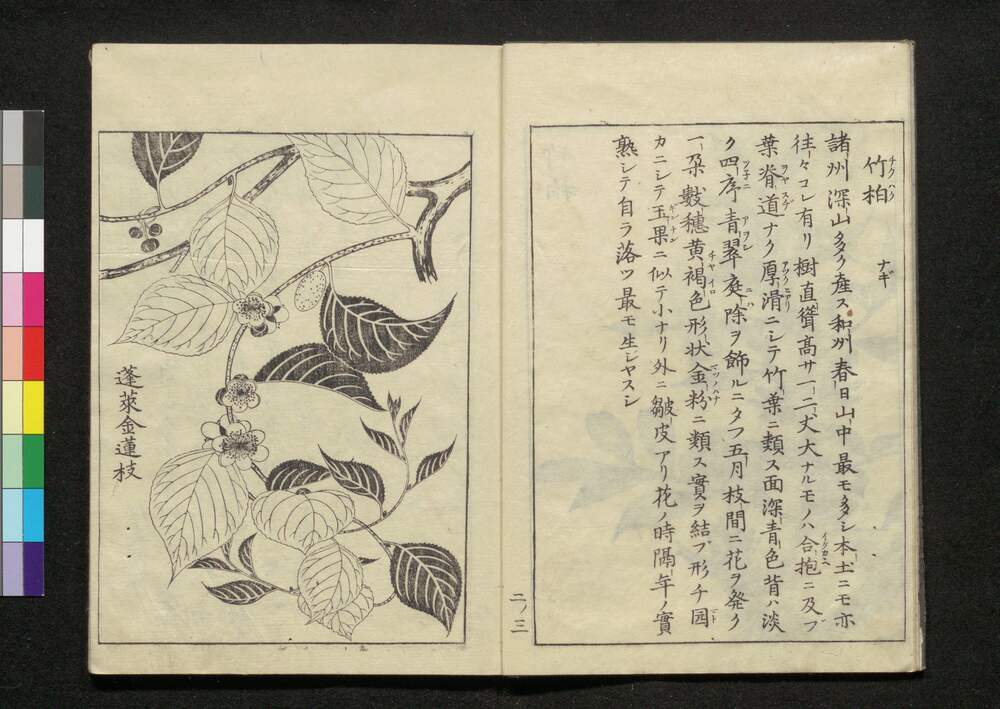 竹柏 ナギ
チクハク
諸州深山多ク産ス和州春日山中最モ多シ本土ニモ亦
往々コレ有リ樹直聳高サ一二丈大ナルモノハ合抱ニ及ブ
葉脊道ナク厚滑ニシテ竹葉ニ類ス面深青色背ハ淡
ク四序青翠庭除ヲ飾ルニタフ五月枝間ニ花ヲ発ク
一朶數穗黄褐色形状金粉ニ類ス實ヲ結ブ形チ円
カニシテ玉果ニ似テ小ナリ外ニ皺皮アリ花ノ時隔年ノ實
熟シテ自ラ落ツ最モ生ジヤスシ
二ノ三
蓬萊金蓮枝